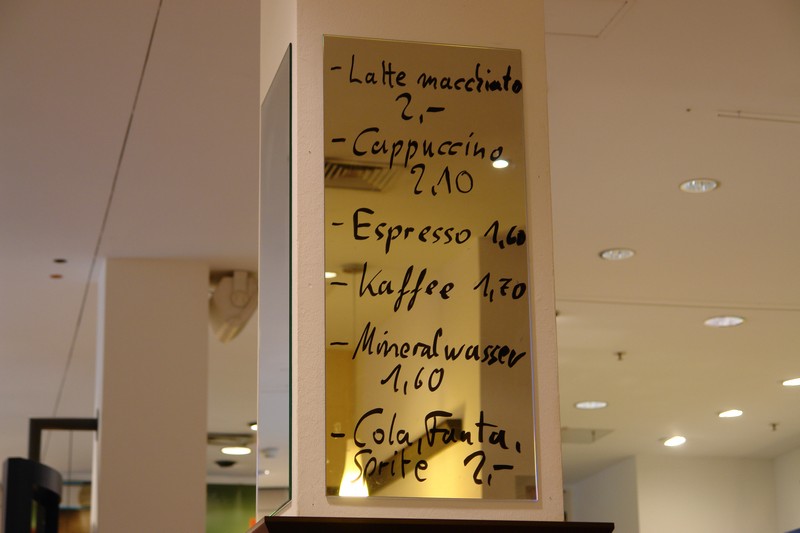 - Latte macchiato
2,-
- Cappuccino
2,10
- Espresso 1,60
- Kaffee 1,70
- Mineralwasser
1,60
- Cola, Fanta,
Sprite 2,-